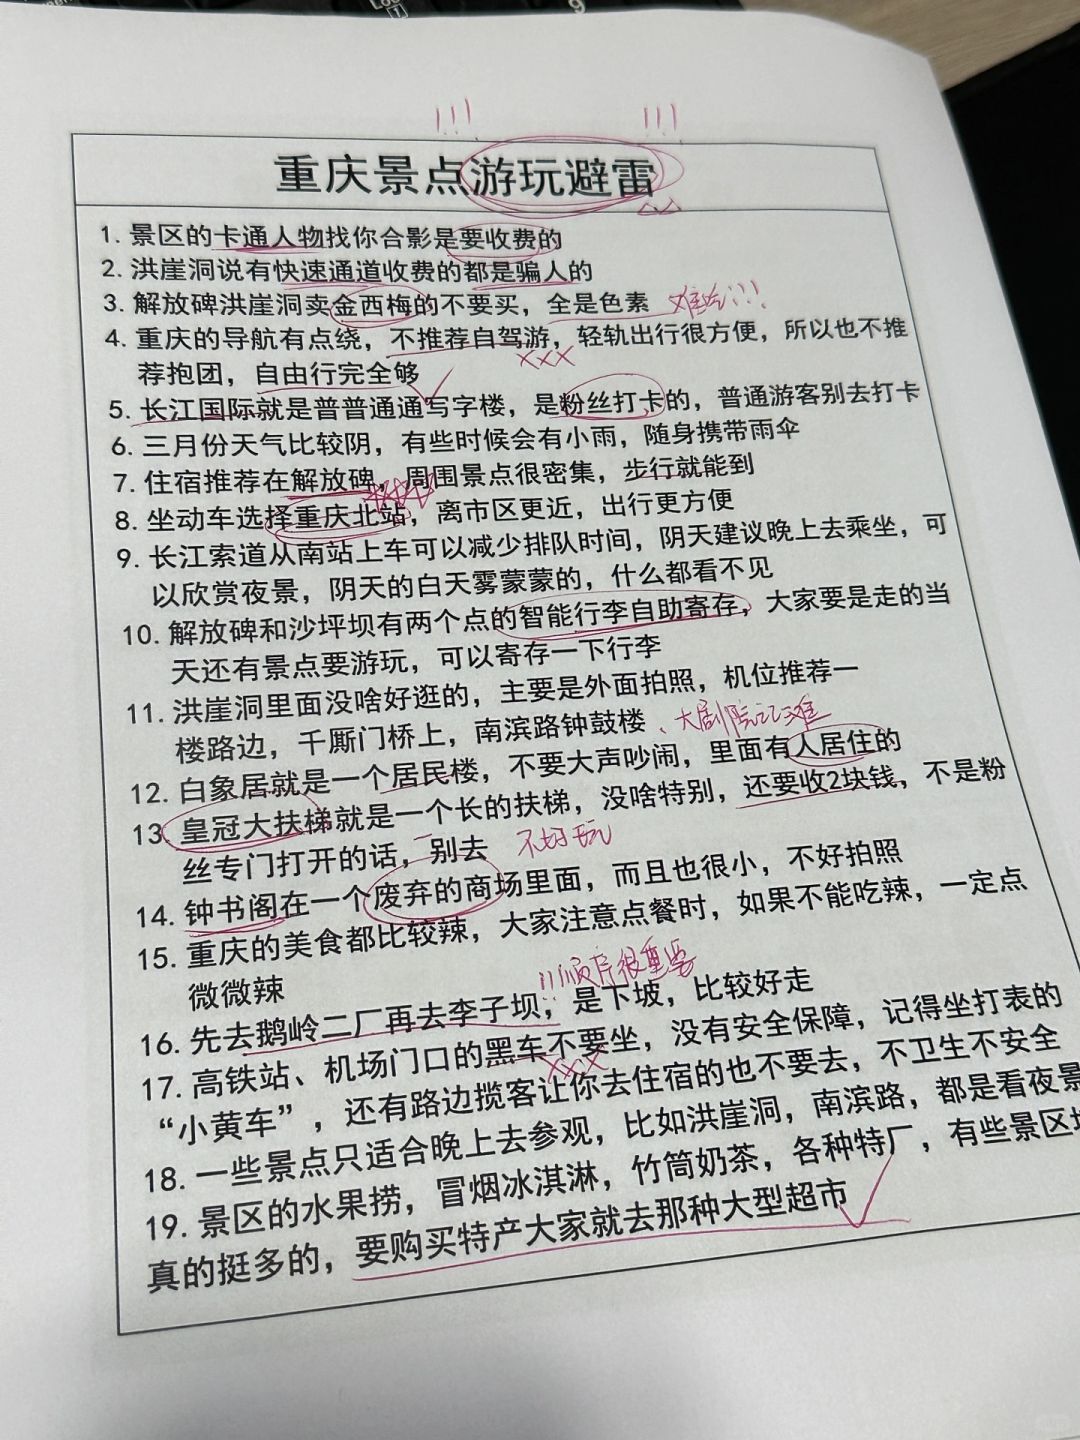 !!! !!!
重庆景点游玩避雷
1. 景区的卡通人物找你合影是要收费的
2. 洪崖洞说有快速通道收费的都是骗人的
3. 解放碑洪崖洞卖金西梅的不要买，全是色素 难吃!!!
4. 重庆的导航有点绕，不推荐自驾游，轻轨出行很方便，所以也不推
xxx
荐抱团，自由行完全够
5. 长江国际就是普普通通写字楼，是粉丝打卡的，普通游客别去打卡
6. 三月份天气比较阴，有些时候会有小雨，随身携带雨伞
7. 住宿推荐在解放碑，周围景点很密集，步行就能到
8. 坐动车选择重庆北站，离市区更近，出行更方便
9. 长江索道从南站上车可以减少排队时间，阴天建议晚上去乘坐，可
以欣赏夜景，阴天的白天雾蒙蒙的，什么都看不见
10. 解放碑和沙坪坝有两个点的智能行李自助寄存，大家要是走的当
天还有景点要游玩，可以寄存一下行李
11. 洪崖洞里面没啥好逛的，主要是外面拍照，机位推荐一
楼路边，千厮门桥上，南滨路钟鼓楼、大剧院
12. 白象居就是一个居民楼，不要大声吵闹，里面有人居住的
13. 皇冠大扶梯就是一个长的扶梯，没啥特别，还要收2块钱，不是粉
丝专门打开的话，别去 不好玩
14. 钟书阁在一个废弃的商场里面，而且也很小，不好拍照
15. 重庆的美食都比较辣，大家注意点餐时，如果不能吃辣，一定点
微微辣
!!!顺序很重要
16. 先去鹅岭二厂再去李子坝，是下坡，比较好走
17. 高铁站、机场门口的黑车不要坐，没有安全保障，记得坐打表的
xxx
“小黄车”，还有路边揽客让你去住宿的也不要去，不卫生不安全
18. 一些景点只适合晚上去参观，比如洪崖洞，南滨路，都是看夜景
19. 景区的水果捞，冒烟冰淇淋，竹筒奶茶，各种特厂，有些景区
真的挺多的，要购买特产大家就去那种大型超市